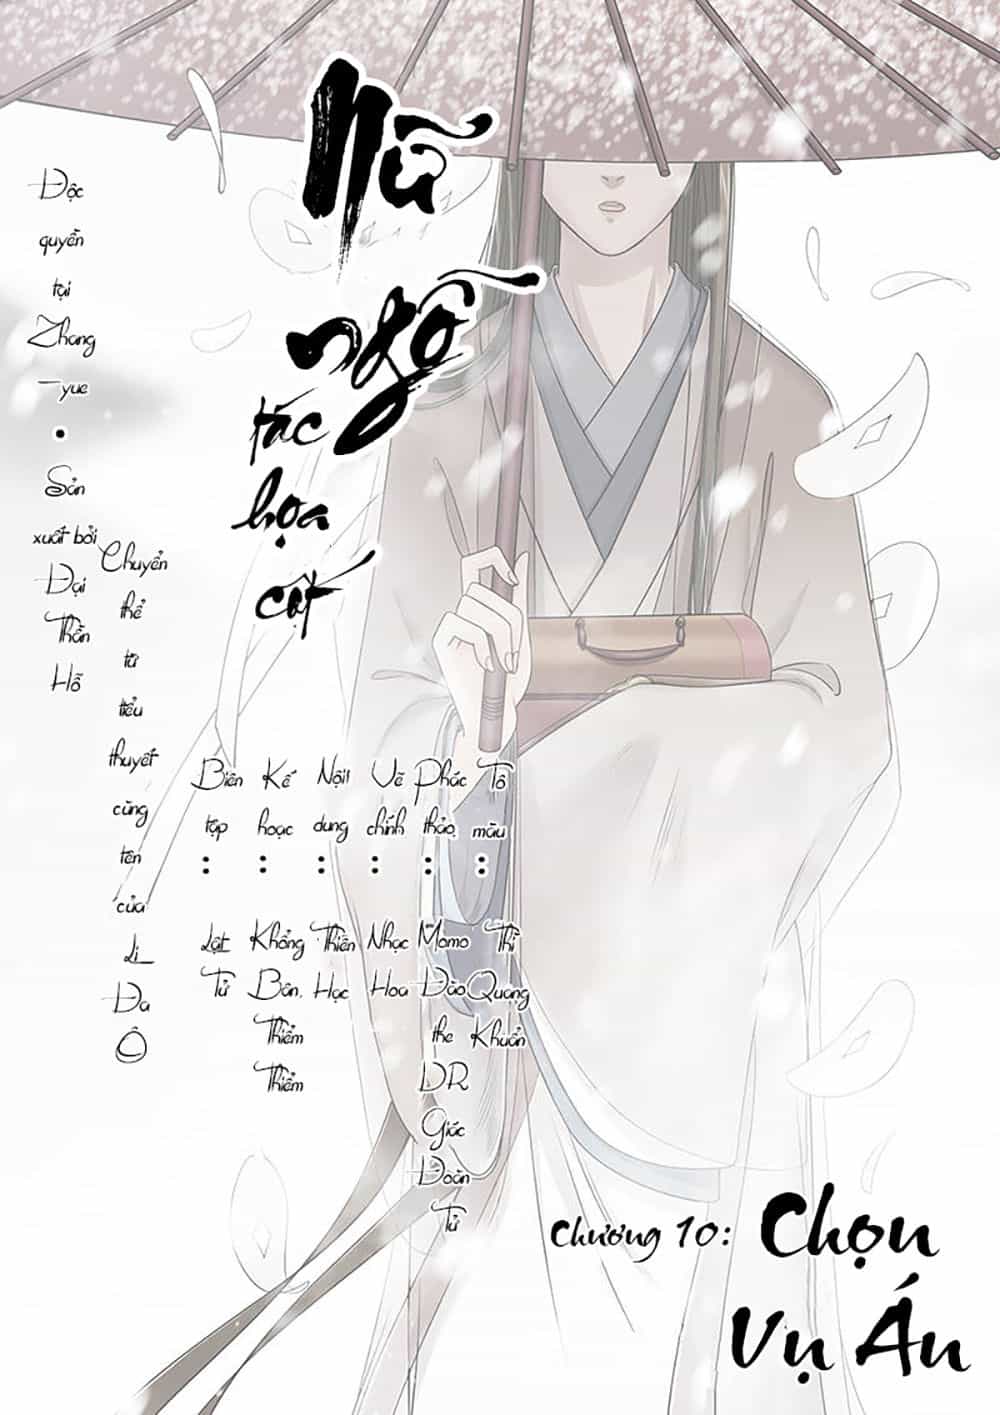 Nữ
ngỗ
tác
họa
cốt
Độc
quyền
tại
Zhang
-yue
•
Sản
xuất bởi
Đại
Thần
Hỗ
Chuyển
thể
từ
tiểu
thuyết
cùng
tên
của
Li
Đa
Ô
Biên
tập
:
Lật
Tử
Kế
hoạc
:
Khổng
Bân,
Thiểm
Thiểm
Nội
dung
:
Thiên
Hạc
Vẽ
chính
:
Nhạc
Hoa
Phác
thảo
:
Momo
Đào
the
DR
Giác
Đoàn
Tử
Tô
màu
:
Thì
Quang
Khuẩn
Chương 10:
Chọn
Vụ Án